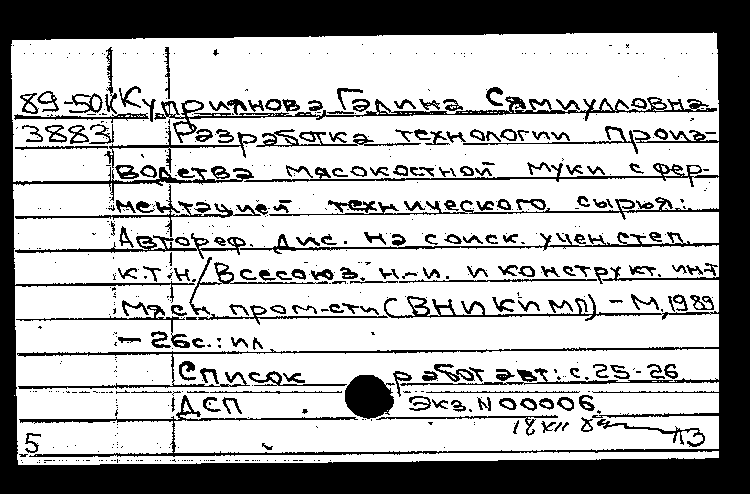 89-50К Куприянова, Галина Самиулловна
3883 Разработка технологии произ-
водства мясокостной муки с фер-
ментацией технического сырья:
Автореф. дис. на соиск. учен. степ.
к.т.н. / Всесоюз. н.-и. и конструкт. ин-т
мясн. пром-сти (ВНИКИМП) - М, 1989
- 26с.: ил.
Список работ авт.: с. 25-26
ДСП Экз. N 00006.
18 XII 89
5